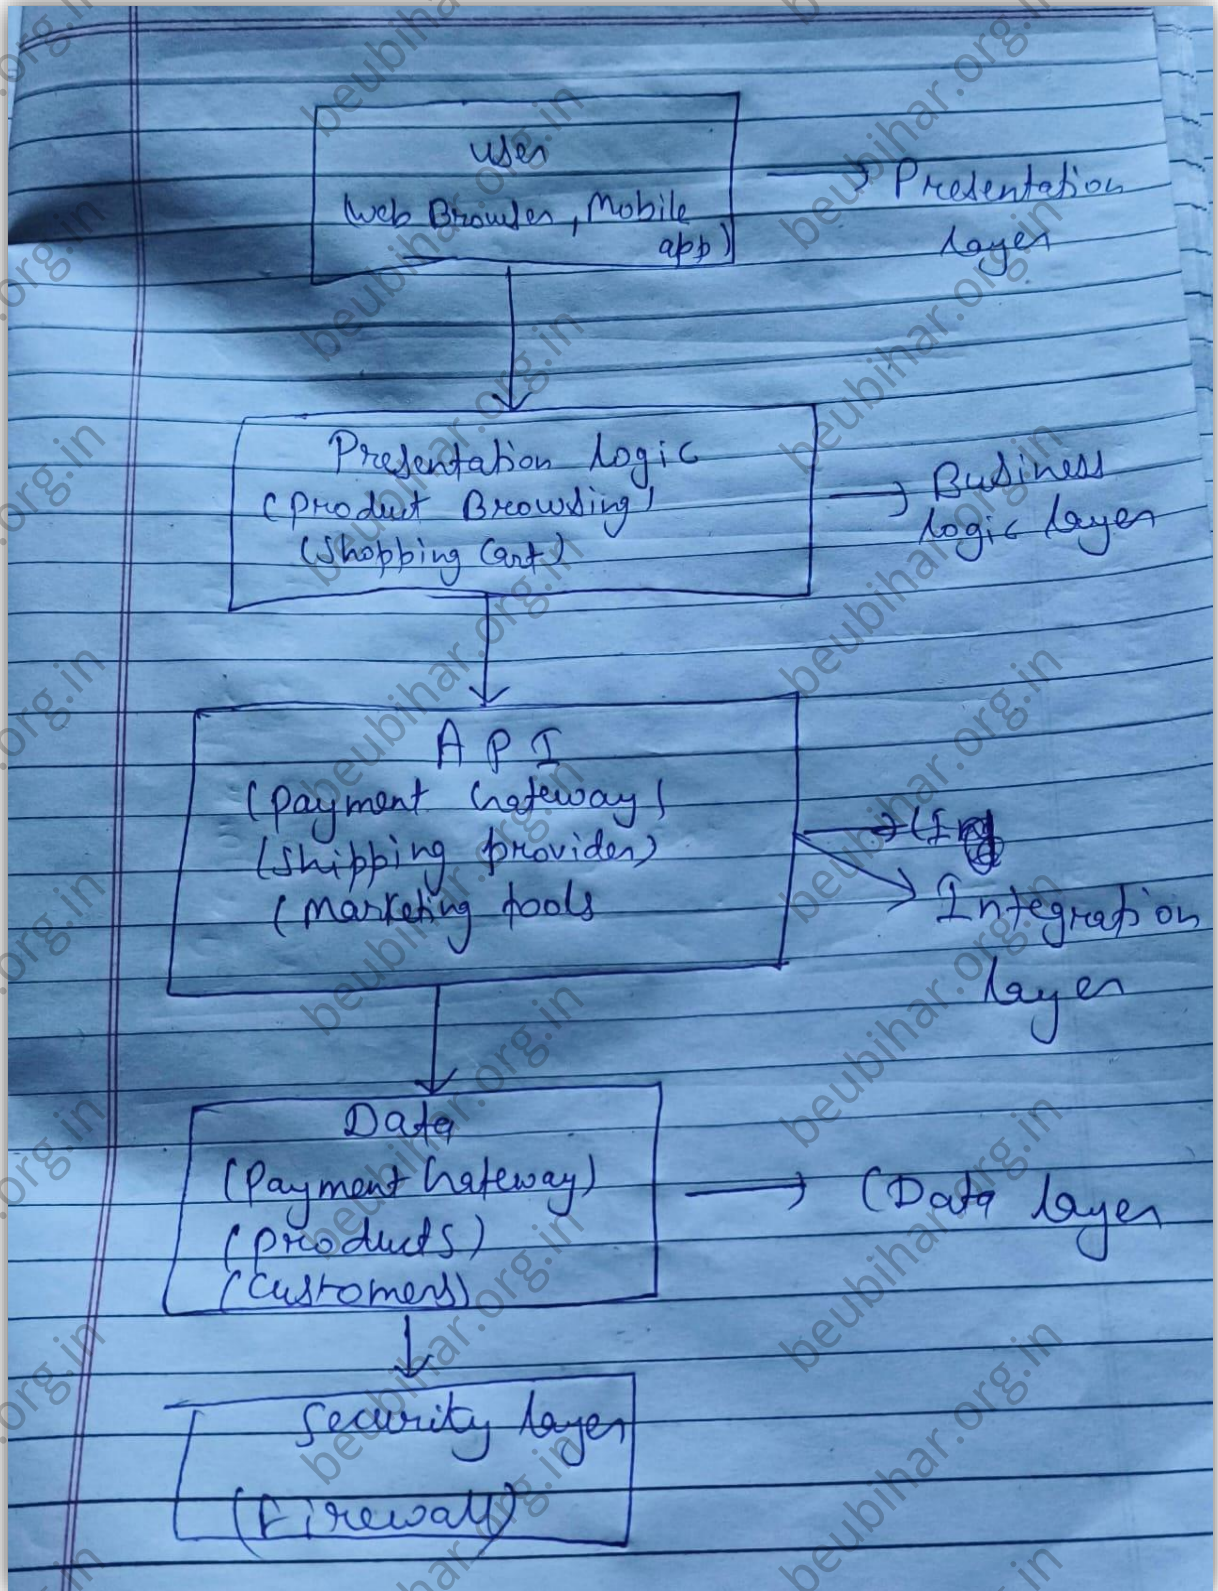 User
(Web Browser, Mobile
app)
→ Presentation
layer
Presentation logic
(Product Browsing)
(Shopping Cart)
→ Business
logic layer
API
(Payment Gateway)
(Shipping provider)
(Marketing tools
→ Integration
layer
Data
(Payment Gateway)
(Products)
(Customers)
→ (Data layer
Security layer
(Firewall)
beubihar.org.in